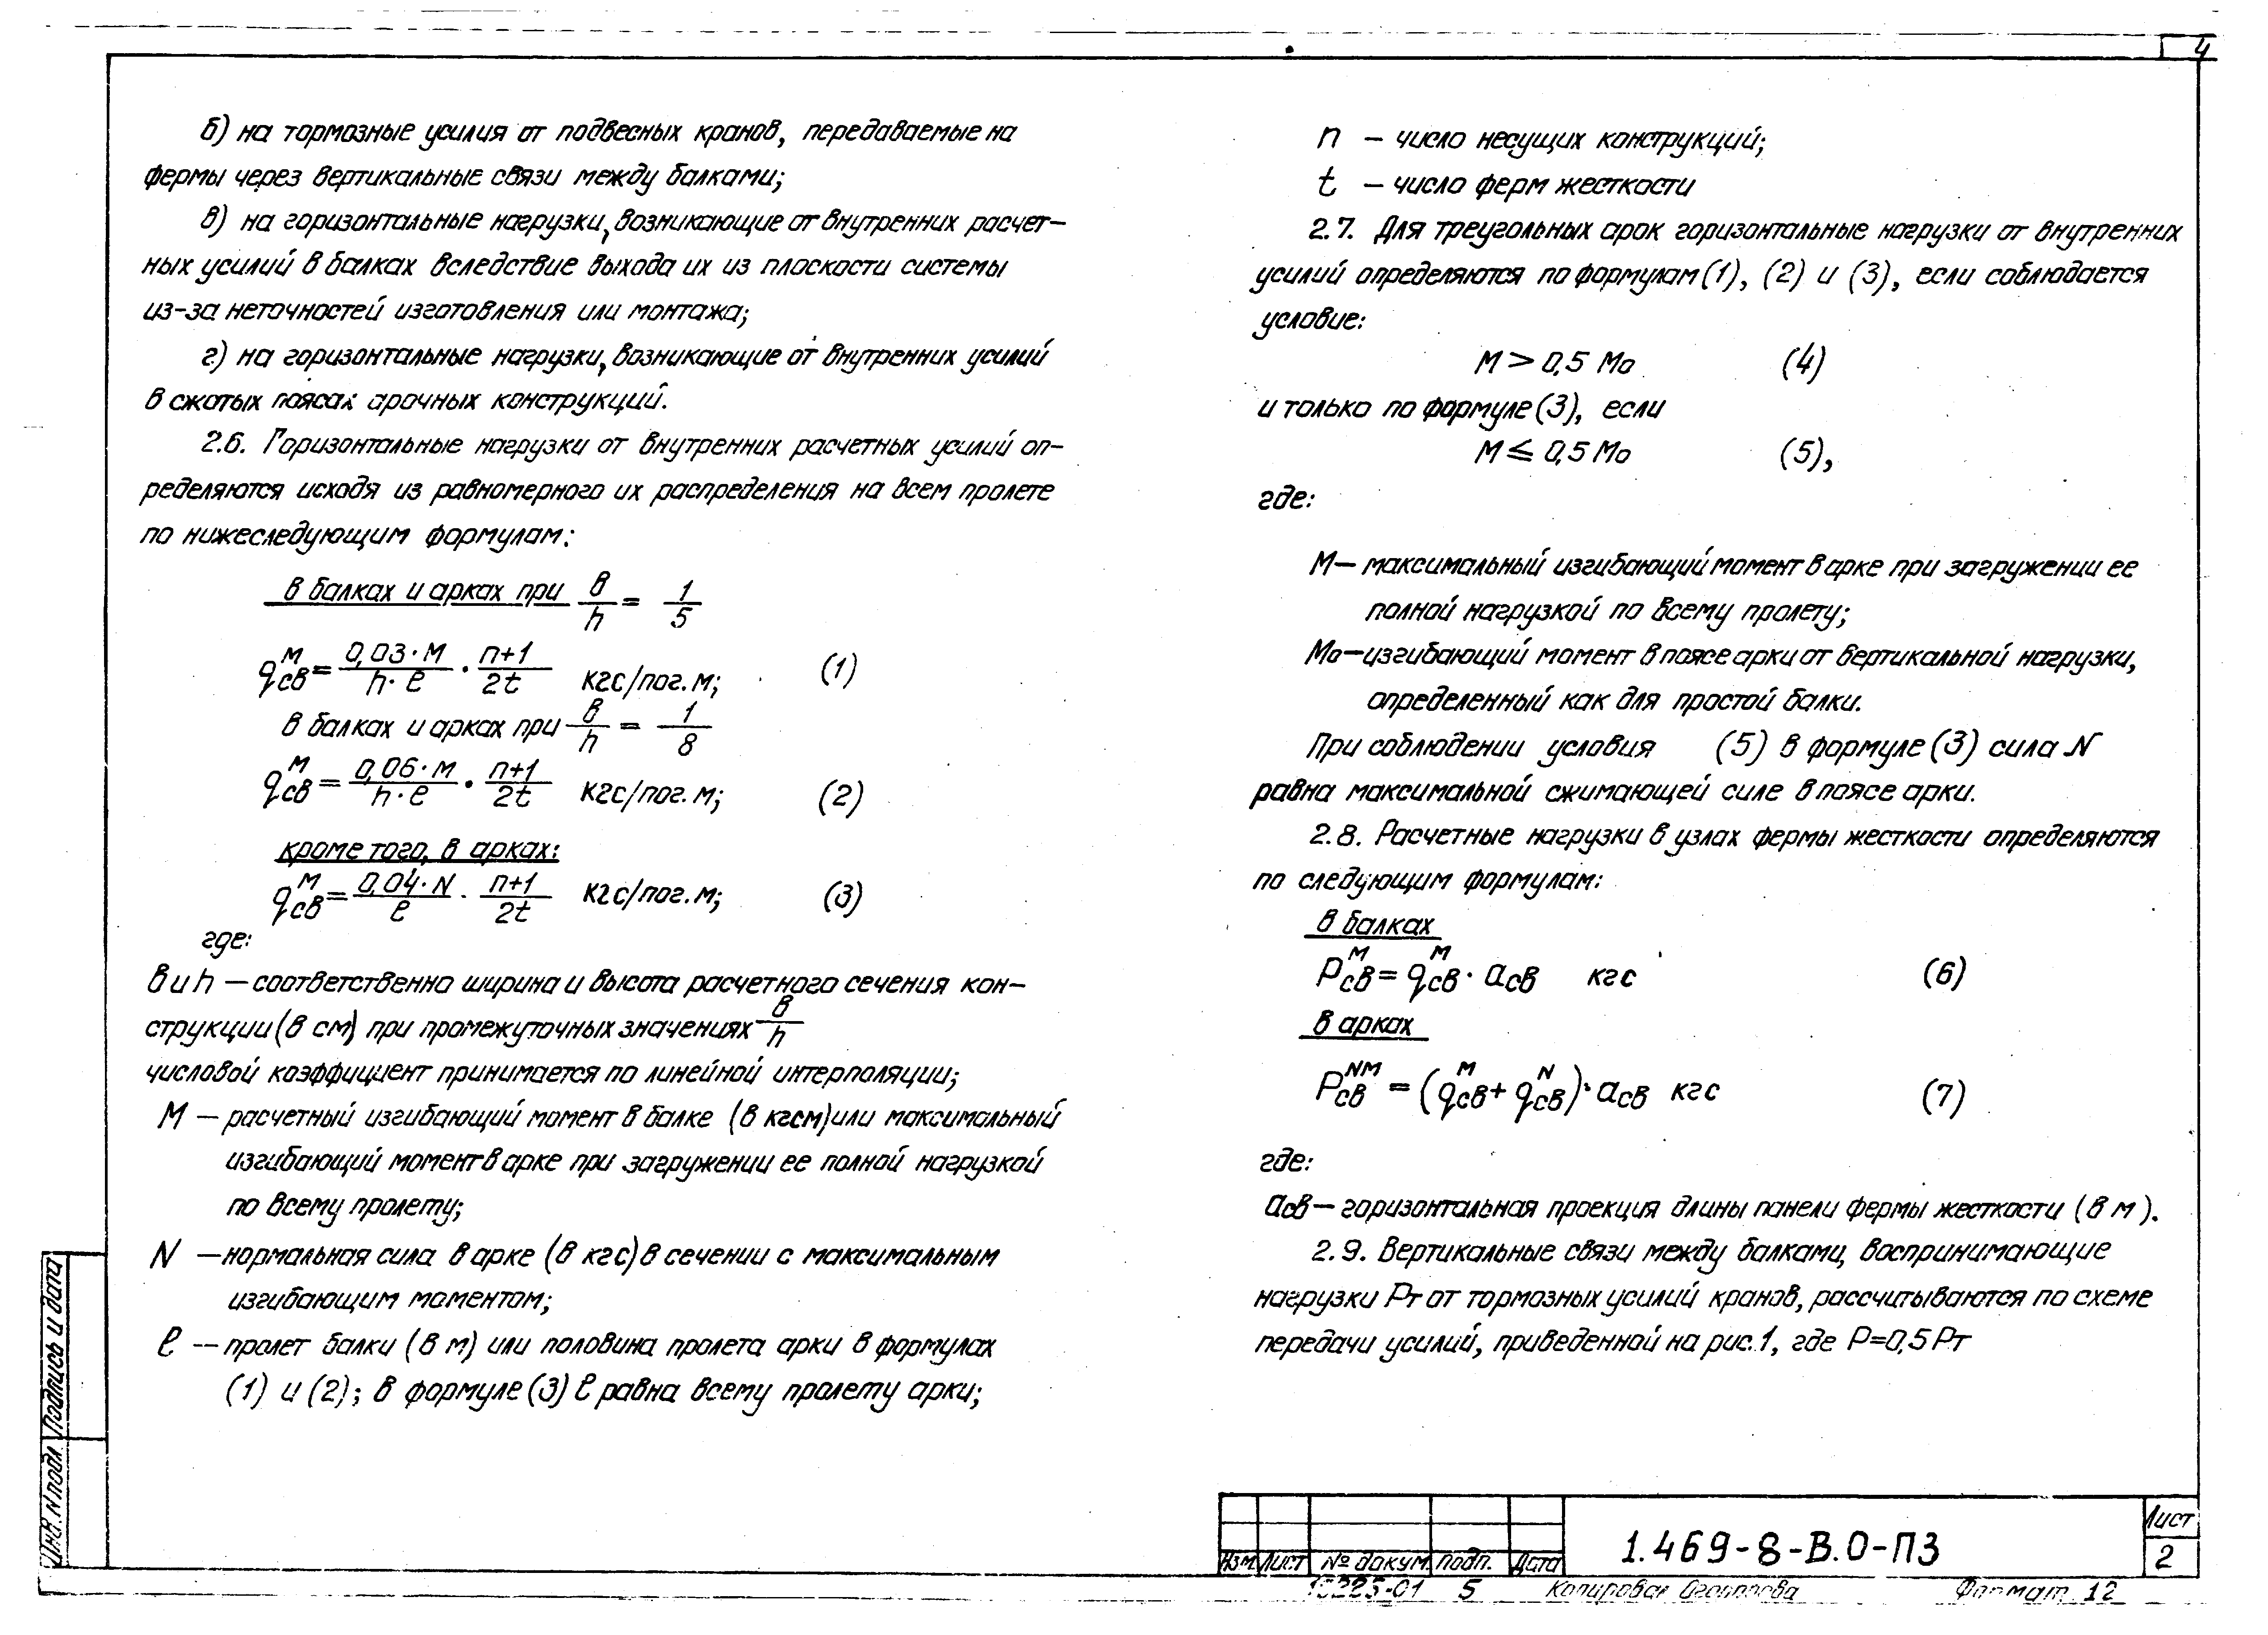 4
б) на тормозные усилия от подвесных кранов, передаваемые на
фермы через вертикальные связи между балками;
в) на горизонтальные нагрузки, возникающие от внутренних расчет-
ных усилий в балках вследствие выхода их из плоскости системы
из-за неточностей изготовления или монтажа;
г) на горизонтальные нагрузки, возникающие от внутренних усилий
в сжатых поясах арочных конструкций.
2.6. Горизонтальные нагрузки от внутренних расчетных усилий оп-
ределяются исходя из равномерного их распределения на всем пролете
по нижеследующим формулам:
в балках и арках при в/h = 1/5
q_св^М = 0,03·М/h·ℓ · n+1/2t кгс/пог.м; (1)
в балках и арках при в/h = 1/8
q_св^М = 0,06·М/h·ℓ · n+1/2t кгс/пог.м; (2)
кроме того, в арках:
q_св^М = 0,04·N/ℓ · n+1/2t кгс/пог.м; (3)
где:
в и h — соответственно ширина и высота расчетного сечения кон-
струкции (в см) при промежуточных значениях в/h
числовой коэффициент принимается по линейной интерполяции;
М — расчетный изгибающий момент в балке (в кгсм) или максимальный
изгибающий момент в арке при загружении ее полной нагрузкой
по всему пролету;
N — нормальная сила в арке (в кгс) в сечении с максимальным
изгибающим моментом;
ℓ — пролет балки (в м) или половина пролета арки в формулах
(1) и (2); в формуле (3) ℓ равна всему пролету арки;
n — число несущих конструкций;
t — число ферм жесткости
2.7. Для треугольных арок горизонтальные нагрузки от внутренних
усилий определяются по формулам (1), (2) и (3), если соблюдается
условие:
М > 0,5 Мо (4)
и только по формуле (3), если
М ≤ 0,5 Мо (5),
где:
М — максимальный изгибающий момент в арке при загружении ее
полной нагрузкой по всему пролету;
Мо — изгибающий момент в поясе арки от вертикальной нагрузки,
определенный как для простой балки.
При соблюдении условия (5) в формуле (3) сила N
равна максимальной сжимающей силе в поясе арки.
2.8. Расчетные нагрузки в узлах фермы жесткости определяются
по следующим формулам:
в балках
P_св^М = q_св^М · a_св кгс (6)
в арках
P_св^NM = (q_св^М + q_св^N) · a_св кгс (7)
где:
a_св — горизонтальная проекция длины панели фермы жесткости (в м).
2.9. Вертикальные связи между балками, воспринимающие
нагрузки Рт от тормозных усилий кранов, рассчитываются по схеме
передачи усилий, приведенной на рис.1, где Р=0,5 Рт
Инв. N подл Подпись и дата
Изм Лист № докум. подп. Дата
1.469-8-В.0-ПЗ
Лист
2
5
Копировал
Формат 12